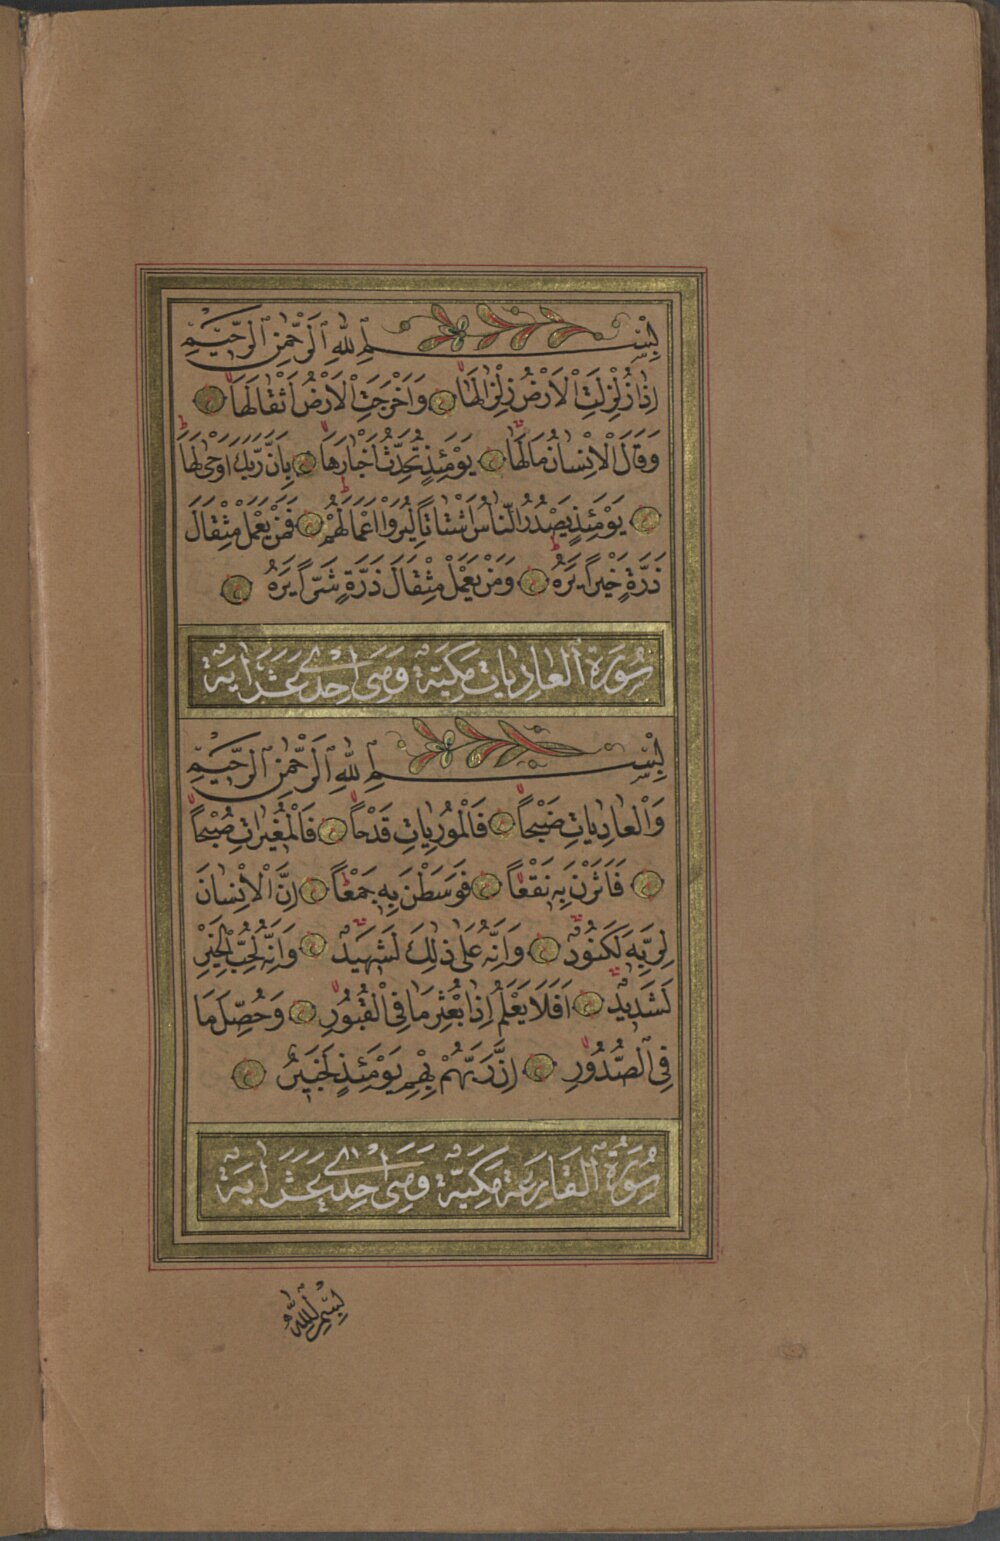 بِسْمِ اللهِ الرَّحْمٰنِ الرَّحِيمِ
اِذَا زُلْزِلَتِ الْاَرْضُ زِلْزَالَهَا وَاَخْرَجَتِ الْاَرْضُ اَثْقَالَهَا
وَقَالَ الْاِنْسَانُ مَا لَهَا يَوْمَئِذٍ تُحَدِّثُ اَخْبَارَهَا بِاَنَّ رَبَّكَ اَوْحٰى لَهَا
يَوْمَئِذٍ يَصْدُرُ النَّاسُ اَشْتَاتًا لِيُرَوْا اَعْمَالَهُمْ فَمَنْ يَعْمَلْ مِثْقَالَ
ذَرَّةٍ خَيْرًا يَرَهُ وَمَنْ يَعْمَلْ مِثْقَالَ ذَرَّةٍ شَرًّا يَرَهُ
سُورَةُ الْعَادِيَاتِ مَكِّيَّةٌ وَهِيَ اِحْدٰى عَشَرَ اٰيَة
بِسْمِ اللهِ الرَّحْمٰنِ الرَّحِيمِ
وَالْعَادِيَاتِ ضَبْحًا فَالْمُورِيَاتِ قَدْحًا فَالْمُغِيرَاتِ صُبْحًا
فَاَثَرْنَ بِهِ نَقْعًا فَوَسَطْنَ بِهِ جَمْعًا اِنَّ الْاِنْسَانَ
لِرَبِّهِ لَكَنُودٌ وَاِنَّهُ عَلٰى ذٰلِكَ لَشَهِيدٌ وَاِنَّهُ لِحُبِّ الْخَيْرِ
لَشَدِيدٌ اَفَلَا يَعْلَمُ اِذَا بُعْثِرَ مَا فِي الْقُبُورِ وَحُصِّلَ مَا
فِي الصُّدُورِ اِنَّ رَبَّهُمْ بِهِمْ يَوْمَئِذٍ لَخَبِيرٌ
سُورَةُ الْقَارِعَةِ مَكِّيَّةٌ وَهِيَ اِحْدٰى عَشَرَ اٰيَة
بِسْمِ اللهِ